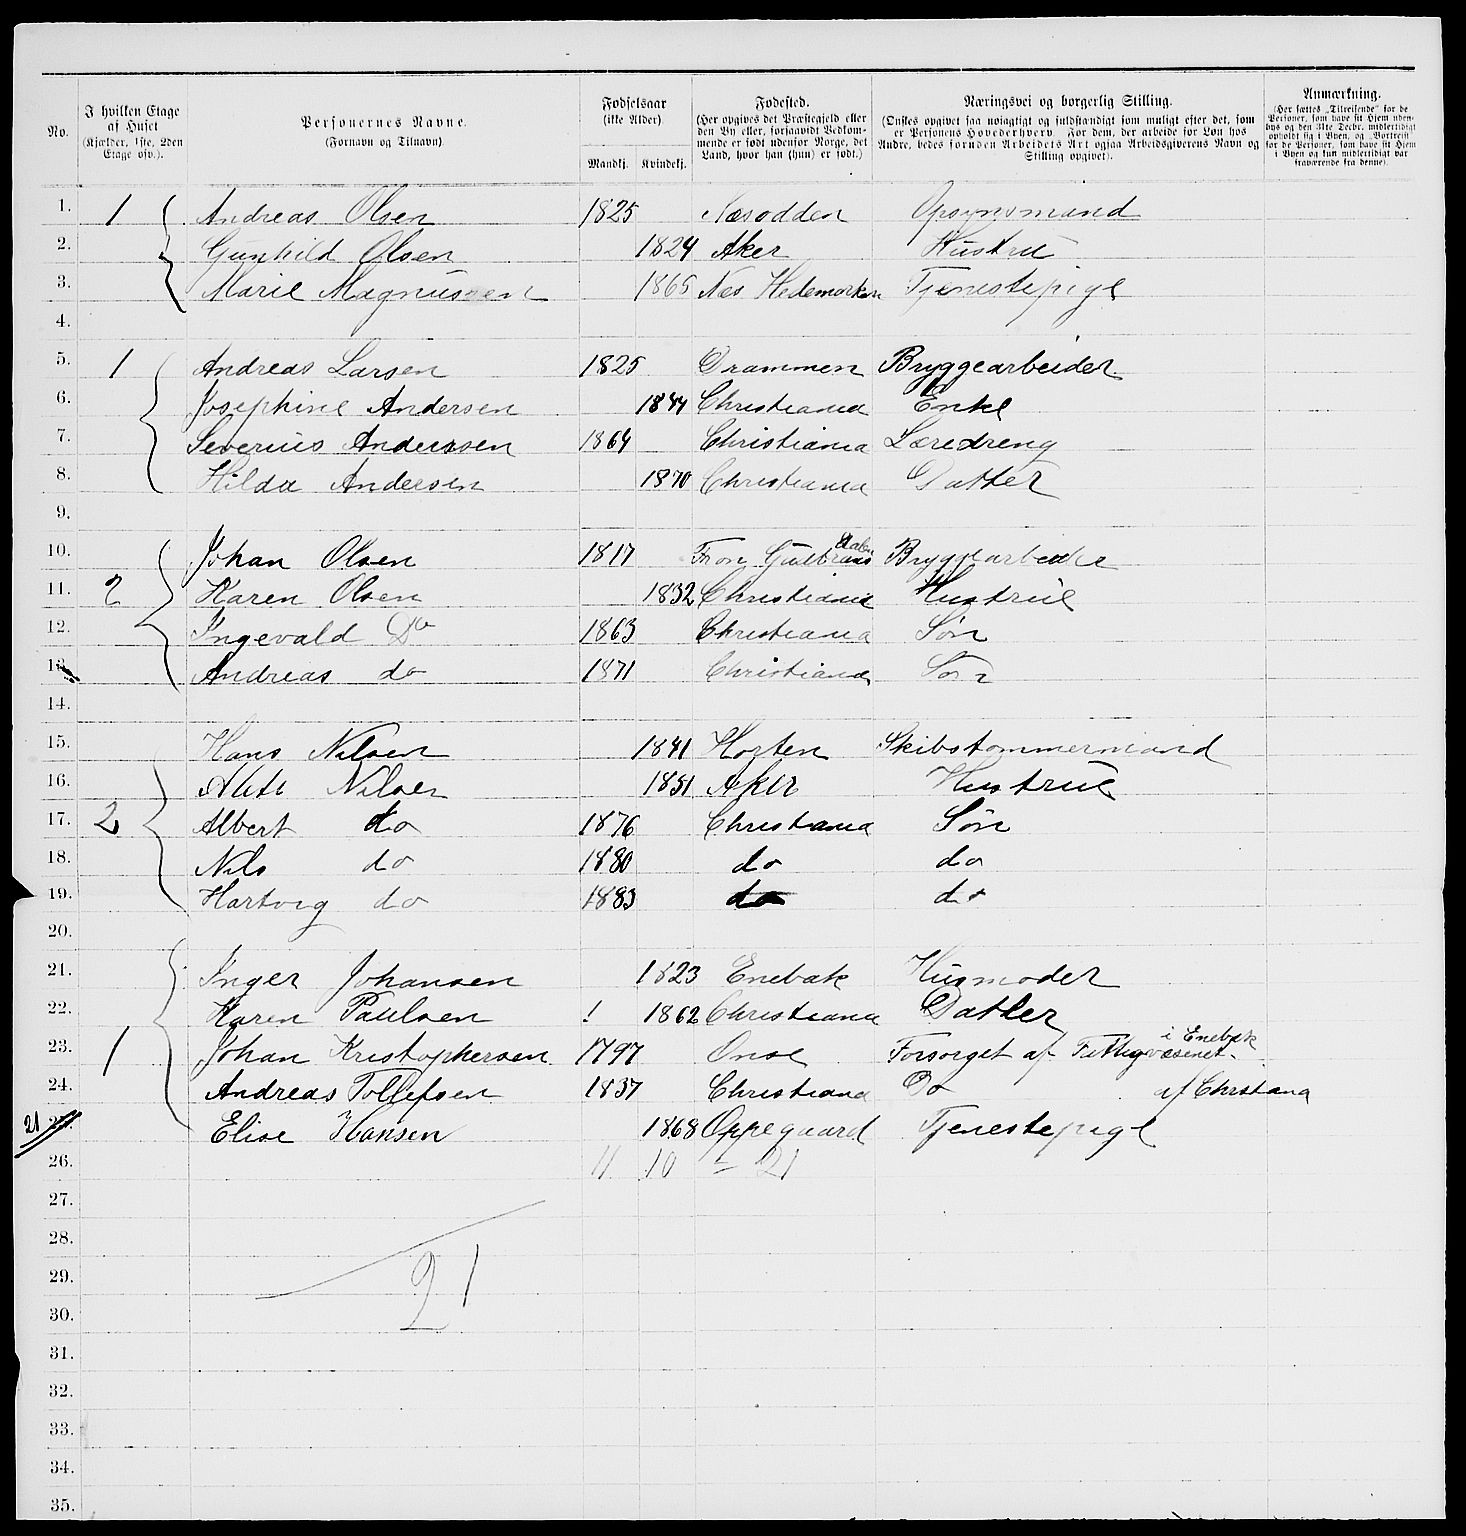 No.
I hvilken Etage af Huset (Kjælder, 1ste, 2den Etage osv.).
Personernes Navne. (Fornavn og Tilnavn).
Fødselsaar (ikke Alder). Mandkj. Kvindekj.
Fødested. (Her opgives det Præstegjeld eller den By eller, forsaavidt Vedkommende er født udenfor Norge, det Land, hvor han (hun) er født.)
Næringsvei og borgerlig Stilling. (Ønskes opgivet saa nøiagtigt og fuldstændigt som muligt efter det, som er Personens Hovederhverv. For dem, der arbeide for Løn hos Andre, bedes foruden Arbeidets Art ogsaa Arbeidsgiverens Navn og Stilling opgivet).
Anmærkning. (Her sættes „Tilreisende" for de Personer, som have sit Hjem udenbys og den 31te Decbr. midlertidigt opholdt sig i Byen, og „Bortreist" for de Personer, som have sit Hjem i Byen og kun midlertidigt var fraværende fra denne).
1. 1 Andreas Olsen 1825 Næsodden Opsynsmand
2. Gunhild Olsen 1824 Aker Hustru
3. Marie Magnussen 1865 Næs Hedemarken Tjenestepige
4.
5. 1 Andreas Larsen 1825 Drammen Bryggearbeider
6. Josephine Andersen 1844 Christiania Enke
7. Severius Anderssen 1864 Christiania Læredreng
8. Hilda Andersen 1870 Christiania Datter
9.
10. Johan Olsen 1817 Fron Gulbransdalen Bryggearbeider
11. 2 Karen Olsen 1832 Christiania Hustrue
12. Ingevald Do 1863 Christiania Søn
13. Andreas do 1871 Christiania Søn
14.
15. Hans Nilsen 1841 Horten Skibstømmermand
16. Nilsen 1851 Aker Hustrue
17. 2 Albert do 1876 Christiania Søn
18. Nils do 1880 do do
19. Hartvig do 1883 do do
20.
21. Inger Johansen 1823 Enebak Husmoder
22. Karen Paulsen ! 1862 Christiana Datter
23. 1 Johan Kristophersen 1797 Onsø Forsørget af Fattigvæsenet i Enebak
24. Andreas Tollefsen 1837 Christiana Do af Christiana
21 25. Elise Hansen 1868 Oppegaard Tjenestepige
26. 11 10 = 21
27.
28.
29. 21
30.
31.
32.
33.
34.
35.